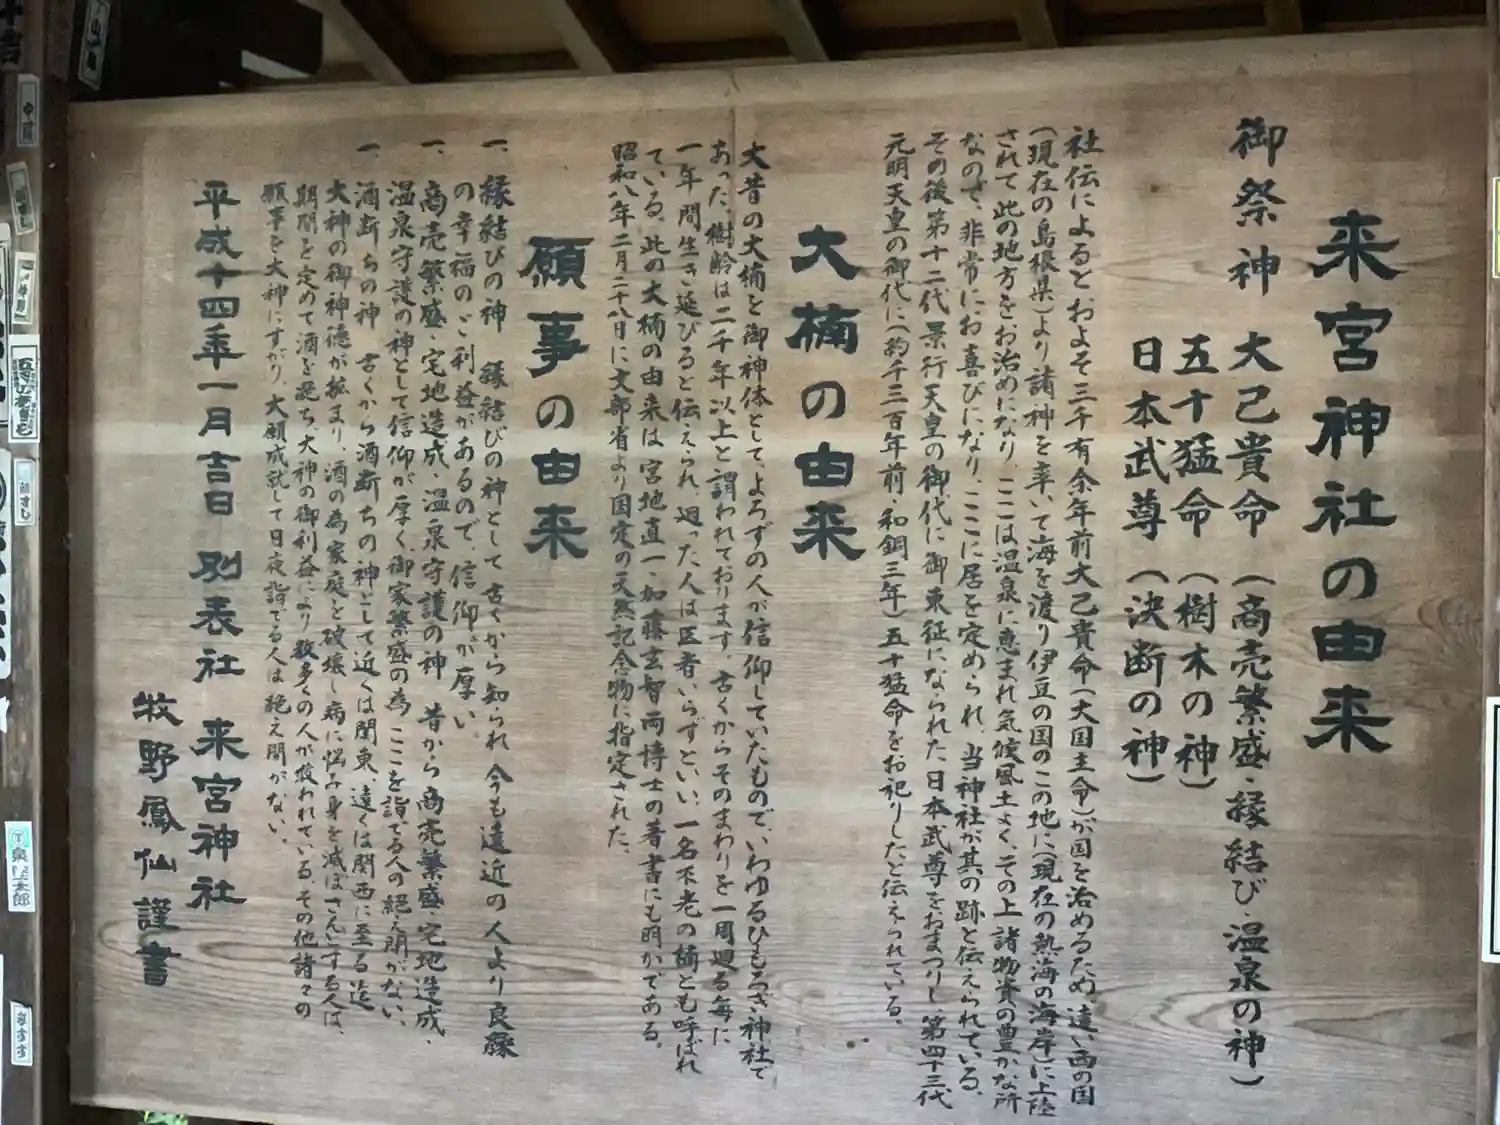 来宮神社の由来
御祭神 大己貴命 (商売繁盛・縁結び・温泉の神)
五十猛命 (樹木の神)
日本武尊 (決断の神)
社伝によるとおよそ三千有余年前大己貴命(大国主命)が国を治めるため、遠い西の国
(現在の島根県)より諸神を率いて海を渡り伊豆の国のこの地に(現在の熱海の海岸)に上陸
されて此の地方をお治めになり、ここは温泉に恵まれ気候風土よく、その上諸物資の豊かな所
なので、非常にお喜びになり、ここに居を定められ、当神社が其の跡と伝えられている。
その後第十二代景行天皇の御代に御東征になられた日本武尊をおまつりし、第四十三代
元明天皇の御代に(約千三百年前・和銅三年)五十猛命をお祀りしたと伝えられている。
大楠の由来
大昔の大楠を御神体として、よろずの人が信仰していたもので、いわゆるひもろぎ神社で
あった。樹齢は二千年以上と謂われております。古くからそのまわりを一周廻る毎に
一年間生き延びると伝えられ、廻った人は医者いらずといい、一名不老の楠とも呼ばれ
ている。此の大楠の由来は宮地直一・加藤玄智両博士の著書にも明かである。
昭和八年二月二十八日に文部省より国定の天然記念物に指定された。
願事の由来
一、縁結びの神 縁結びの神として古くから知られ今も遠近の人より良縁
の幸福のご利益があるので、信仰が厚い。
一、商売繁盛・宅地造成・温泉守護の神 昔から商売繁盛・宅地造成・
温泉守護の神として信仰が厚く、御家繁盛の為ここを詣でる人の絶え間がない。
一、酒断ちの神 古くから酒断ちの神として近くは関東、遠くは関西に至る迄
大神の御神徳が拡まり、酒の為家庭を破壊し病に悩み身を滅ぼさんとする人は、
期間を定めて酒を断ち、大神の御利益により数多くの人が救われている。その他諸々の
願事を大神にすがり、大願成就して日夜詣でる人は絶え間がない。
平成十四年一月吉日 別表社 来宮神社
牧野鳳仙謹書